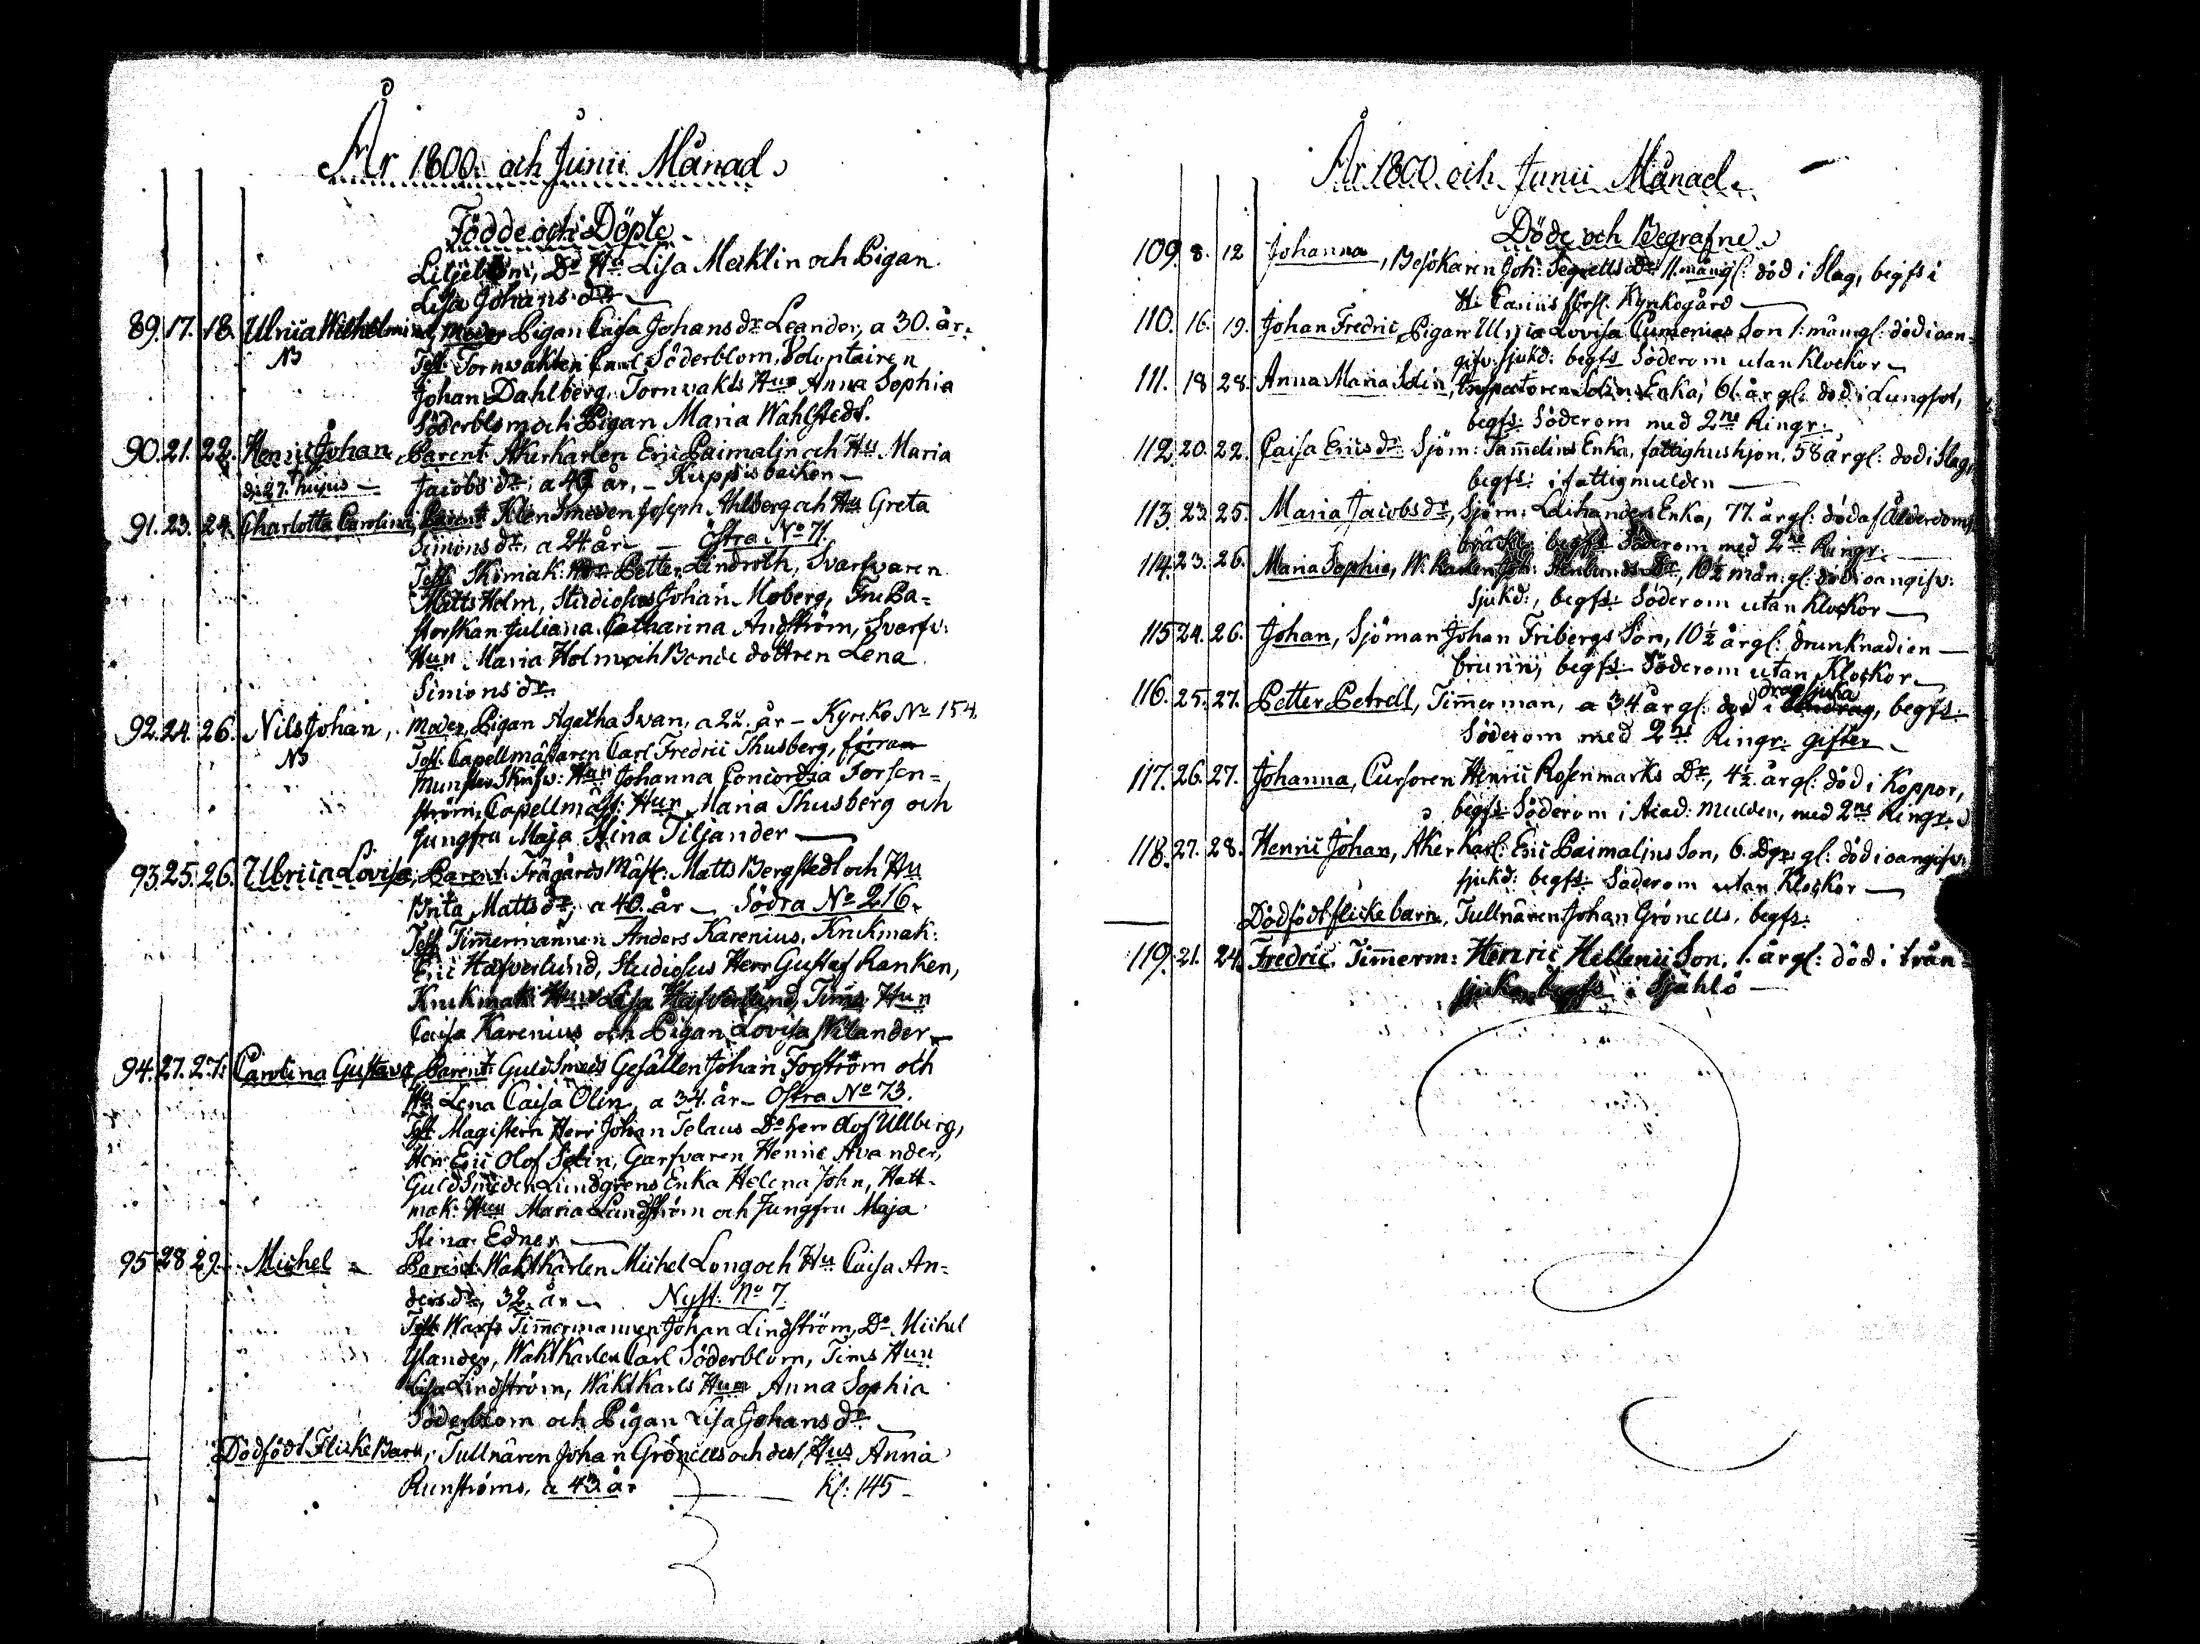 År 1800. och Junii Månad
Födde och Döpte
Liljeblom, Dr. Hu Lisa Meklin och Pigan
Lisa Johans dr.
89. 17. 18. Ulrica Wilhelmina, Moder Pigan Caisa Johans dr. Leander, a 30. år.
NB Test: Tornwakten Carl Söderblom, Voluptairen
Johan Dahlberg, Tornvakts Hun Anna Sophia
Söderblom och Pigan Maria Wahlstedt.
90. 21. 22. Henric Johan, Parent: Åkerkarlen Eric Paimalin och Hu Maria
d. 27. hujus — Jacobs dr: a år, — Kuppis backen —
91. 23. 24. Charlotta Carolina, Parent: Klensmeden Joseph Ahlberg och Hu Greta
Simons dr: a 24 år — Östra No 71.
Test: Skomak: Petter Lindroth, Svarfvaren
Matts Helm, Studiosus Johan Moberg, Fru Pa-
storskan Juliana Catharina Andström, Svarfv:
Hun Maria Holm och Bonde dottren Lena
Simons dr.
92. 24. 26. Nils Johan, Moder, Pigan Agatha Swan, a 22. år — Kyrko No 154.
NB Test: Capellmästaren Carl Fredric Thusberg,
Munster Skrifv: Hun Johanna Concordia Forsen-
ström, Capellmäst: Hun Maria Thusberg och
Jungfru Maja Stina Tiljander —
93. 25. 26. Ulrica Lovisa, Parent: Trägårds Mäst: Matts Bergstedt och Hu
Brita Matts dr, a 40. år — Södra No 216.
Test Timmermannen Anders Karenius, Krukmak:
Eric Hafverlund, Studiosus Herr Gustaf Ranken,
Krukmak: Hun Lisa Hafverlund, Tims Hun
Caisa Karenius och Pigan Lovisa Wilander —
94. 27. 27. Carolina Gustava, Parent: Guldsmeds Gesällen Johan Fogström och
Hu Lena Caisa Olin, a 34. år — Östra No 73.
Test Magistern Herr Johan Telaus Do herr Olof Ullberg,
Herr Eric Olof Solin, Garfvaren Henric Avander,
Guldsmeden Lundgrens Enka Helena John, Hatt-
mak: Hun Maria Lundström och Jungfru Maja
Stina Edner —
95 28 29. Michel — Parent: Waktkarlen Michel Long och Hu Caisa An-
ders dr, 32. år — Nyst: No 7.
Test: Warfs Timmermannen Johan Lindström, Do Michel
Ylander, Waktkarlen Carl Söderblom, Tims Hun
Lisa Lindström, Waktkarls Hun Anna Sophia
Söderblom och Pigan Lisa Johans dr —
Dödfödt Flicke Barn, Tullnären Johan Grönells och dess Hus Anna
Runströms, a 43 år — Kl: 145 —
År 1800. och Junii Månad.
Döde och Begrafne
109. 8. 12 Johanna, Besökaren Joh: Segrells Dr 11. mån gl: död i Slag, begfs i
St. Carins förs: Kyrkogård —
110. 16. 19. Johan Fredric, Pigan Ulrica Lovisa Cumenias Son 1: mån gl: död i oan-
gifv: sjukd: begfs Söderom utan Klockor —
111. 18 28. Anna Maria Solin, Inspectoren Solins Enka, 61. år gl: död i Lungsot,
begfs: Söderom med 2ne Ringr:
112. 20. 22. Caisa Erics dr Sjöm: Tammelins Enka, fattighushjon, 58 år gl: död i Slag,
begfs: i fattigmulden —
113. 23. 25. Maria Jacobs dr, Sjöm: Enka, 77. år gl: död af Ålderdoms
bräcka begfs Söderom med 2ne Ringr:
114. 23. 26. Maria Sophia, W. Dr, 10½ mån: gl: död i oangifv:
sjukd:, begfs: Söderom utan Klockor —
115 24. 26. Johan, Sjöman Johan Fribergs Son, 10½ år gl: drunknad i en
brunn, begfs: Söderom utan Klockor —
116. 25. 27. Petter Petrell, Timmerman, a 34 år gl: död i dragsjuka, begfs:
Söderom med 2ne Ringr: gifter —
117. 26. 27. Johanna, Cursoren Henric Rosenmarks Dr, 4½ år gl: död i Koppor,
begfs: Söderom i Acad: Mulden, med 2ne Ringr.
118. 27. 28. Henric Johan, Åker Karl: Eric Paimalins Son, 6. Dgr gl: död i oangifv:
sjukd: begfs: Söderom utan Klockor —
Dödfödt flicke barn, Tullnären Johan Grönells, begfs:
119. 21. 24. Fredric, Timmerm: Henric Hellenii Son, 1. år gl: död i trån-
sjuka, begfs i Själlö —